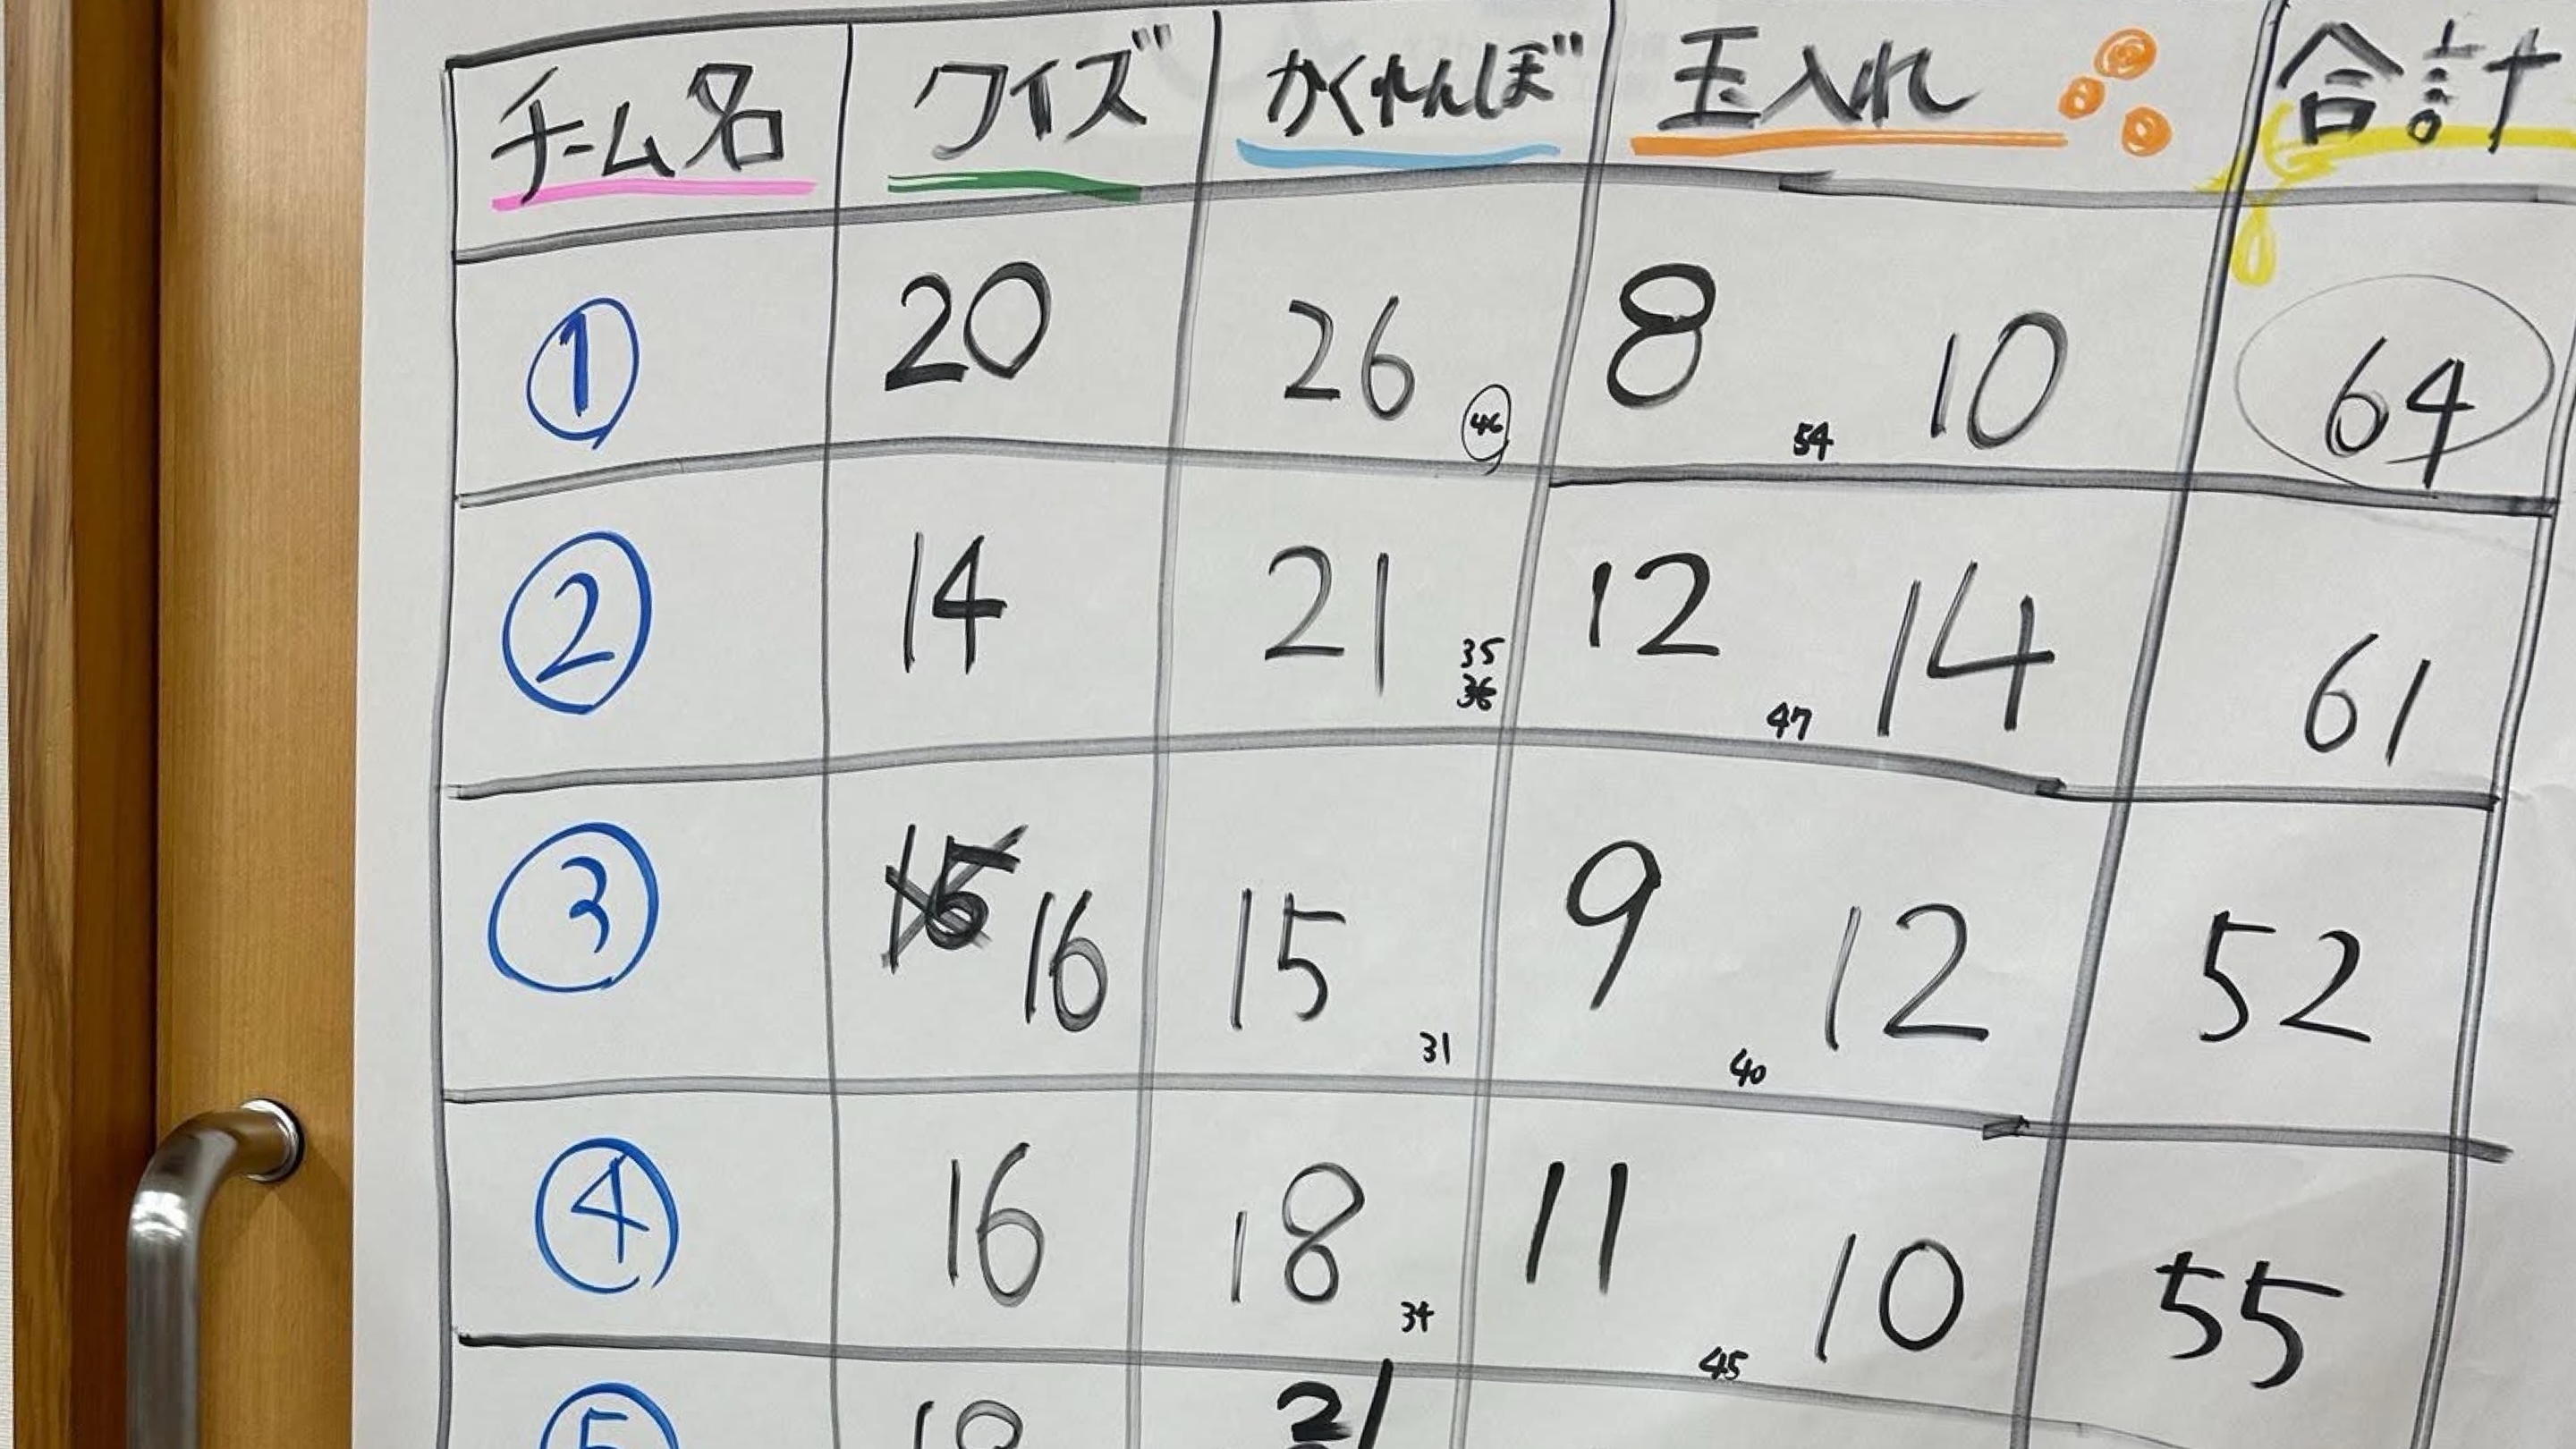 チーム名 クイズ かくれんぼ 玉入れ 合計
① 20 26 46 8 54 10 64
② 14 21 35 36 12 47 14 61
③ 15 16 15 31 9 40 12 52
④ 16 18 34 11 45 10 55
⑤ 18 21